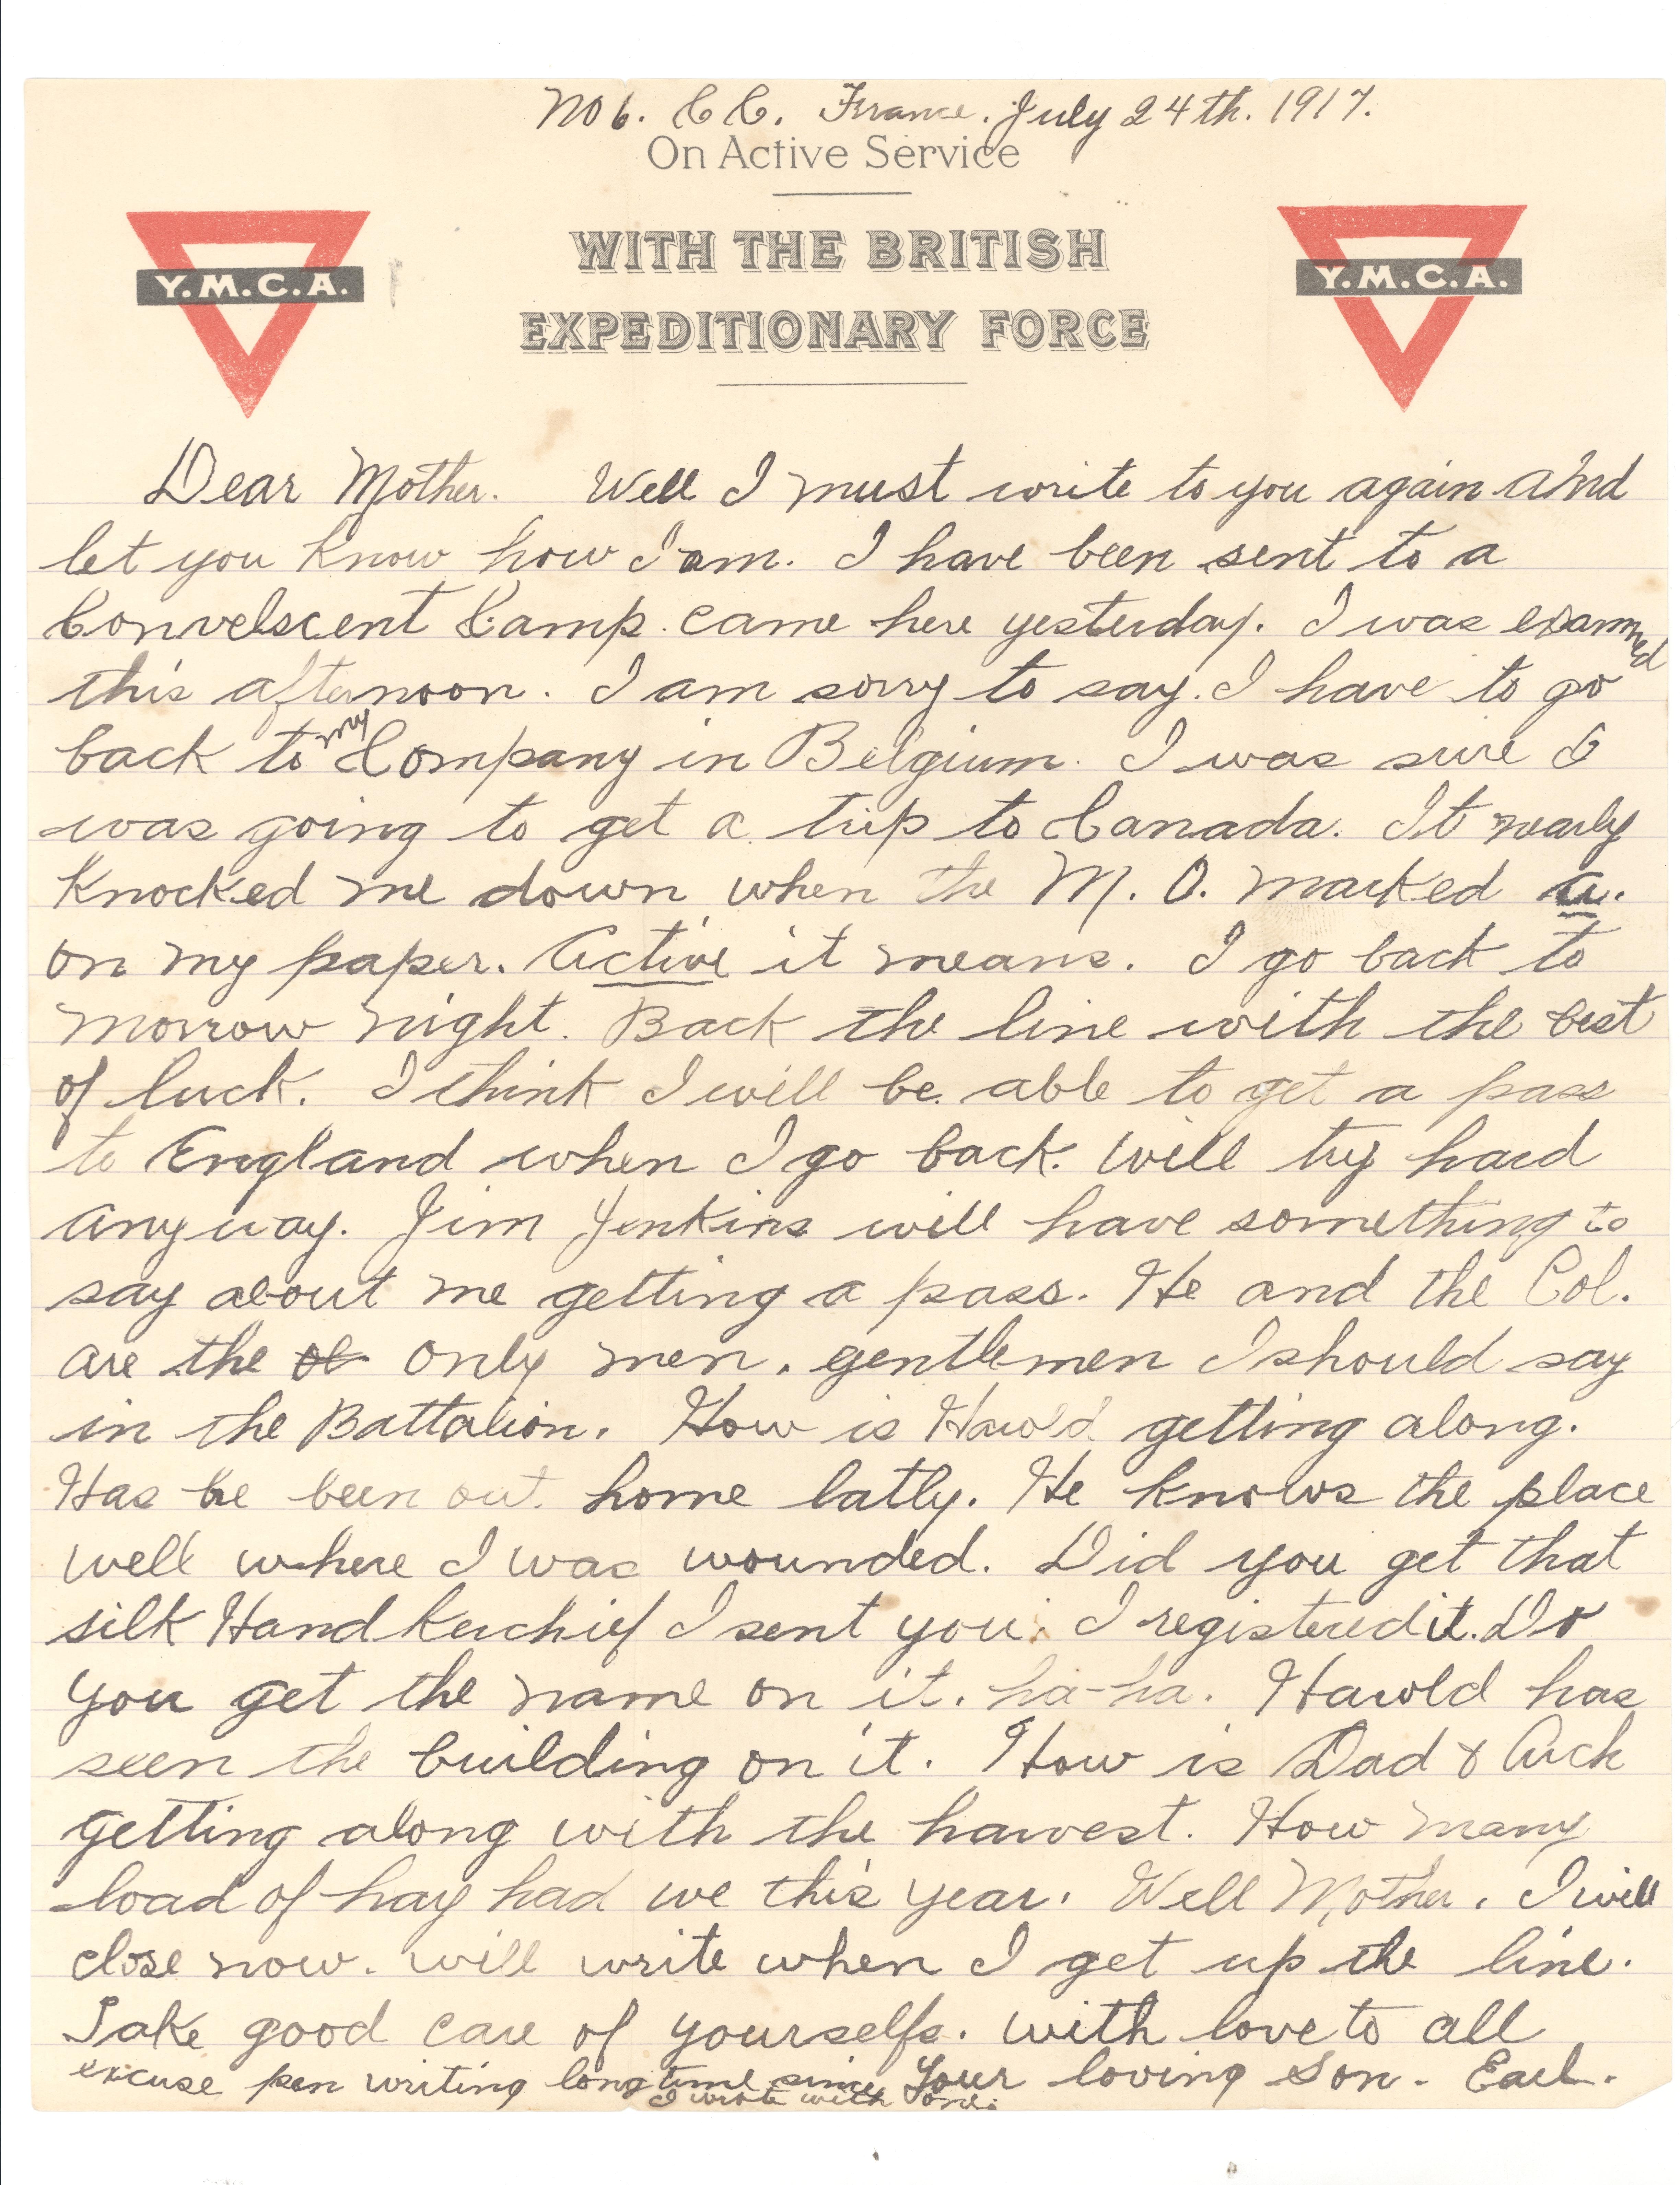 No 6. C C. France. July 24th. 1917.
On Active Service
WITH THE BRITISH
EXPEDITIONARY FORCE
Y.M.C.A.
Y.M.C.A.
Dear Mother. Well I must write to you again and
let you know how I am. I have been sent to a
Convelscent Camp. came here yesterday. I was examned
this afternoon. I am sorry to say. I have to go
back to my Company in Belgium. I was sure I
was going to get a trip to Canada. It nearly
knocked me down when the M. O. marked a.
on my paper. Active it means. I go back to
morrow night. Back the line with the best
of luck. I think I will be able to get a pass
to England when I go back. will try hard
anyway. Jim Jenkins will have something to
say about me getting a pass. He and the Col.
are the ol only men. gentlemen I should say
in the Battalion. How is Harold getting along.
Has he been out home latly. He knows the place
well where I was wounded. Did you get that
silk Handkerchief I sent you. I registered it. Do
you get the name on it. ha-ha. Harold has
seen the building on it. How is Dad & Arch
getting along with the harvest. How many
load of hay had we this year. Well Mother. I will
close now. will write when I get up the line.
Take good care of yourselfs. with love to all
Your loving Son. Earl.
excuse pen writing long time since
I wrote with one.